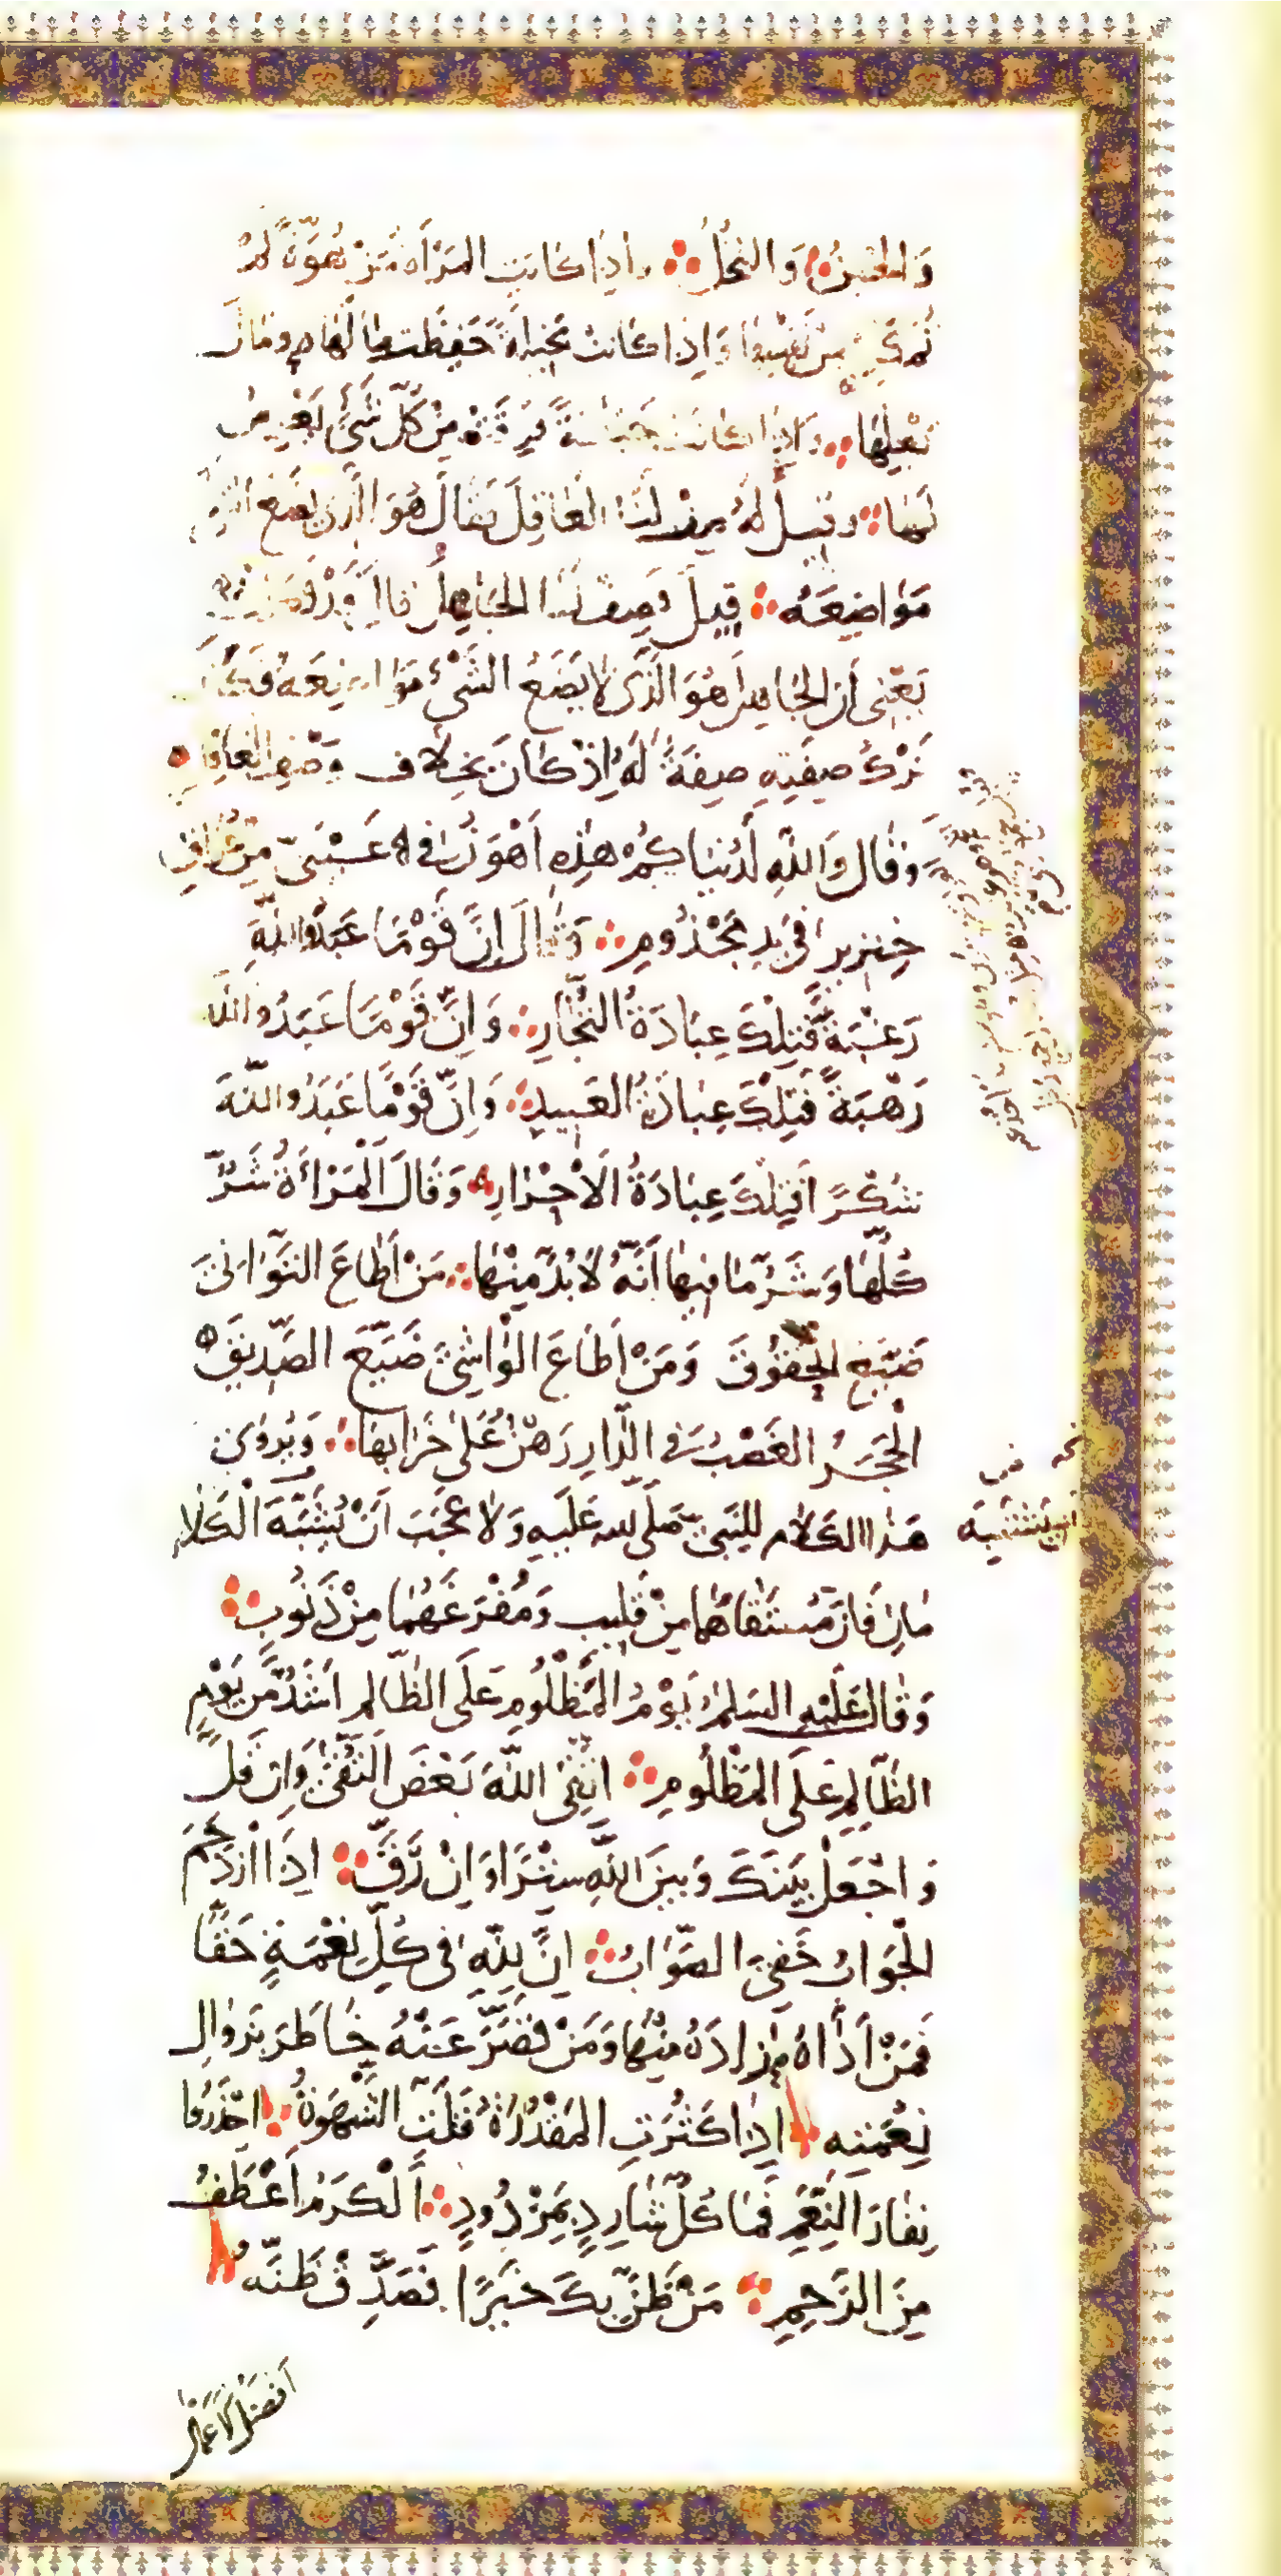 وَالجُبْنُ وَالبُخْلُ وَاِذَا كَانَتِ المَرْأَةُ مَزْهُوَّةً لَمْ
تُمَكِّنْ مِنْ نَفْسِهَا وَاِذَا كَانَتْ بَخِيلَةً حَفِظَتْ مَالَهَا وَمَالَ
بَعْلِهَا وَاِذَا كَانَتْ جَبَانَةً فَرِقَتْ مِنْ كُلِّ شَيْءٍ يَعْرِضُ
لَهَا وَقِيلَ لَهُ صِفْ لَنَا العَاقِلَ فَقَالَ هُوَ الَّذِي يَضَعُ الشَّيْءَ
مَوَاضِعَهُ قِيلَ فَصِفْ لَنَا الجَاهِلَ قَالَ قَدْ فَعَلْتُ
يَعْنِي أَنَّ الجَاهِلَ هُوَ الَّذِي لَا يَضَعُ الشَّيْءَ مَوَاضِعَهُ فَكَأَنَّ
تَرْكَ صِفَتِهِ صِفَةٌ لَهُ اِذْ كَانَ بِخِلَافِ وَصْفِ العَاقِلِ
وَقَالَ وَاللهِ لَدُنْيَاكُمْ هٰذِهِ اَهْوَنُ فِي عَيْنِي مِنْ عُرَاقِ
خِنْزِيرٍ فِي يَدِ مَجْذُومٍ وَقَالَ اِنَّ قَوْمًا عَبَدُوا اللهَ
رَغْبَةً فَتِلْكَ عِبَادَةُ التُّجَّارِ وَاِنَّ قَوْمًا عَبَدُوا اللهَ
رَهْبَةً فَتِلْكَ عِبَادَةُ العَبِيدِ وَاِنَّ قَوْمًا عَبَدُوا اللهَ
شُكْرًا فَتِلْكَ عِبَادَةُ الاَحْرَارِ وَقَالَ اَلْمَرْاَةُ شَرٌّ
كُلُّهَا وَشَرُّ مَا فِيهَا اَنَّهُ لَا بُدَّ مِنْهَا مَنْ اَطَاعَ التَّوَانِيَ
ضَيَّعَ الحُقُوقَ وَمَنْ اَطَاعَ الوَاشِيَ ضَيَّعَ الصَّدِيقَ
الحَجَرُ الغَصْبُ فِي الدَّارِ رَهْنٌ عَلَى خَرَابِهَا وَيُرْوَى
هَذَا الكَلَامُ لِلنَّبِيِّ صَلَّى اللهُ عَلَيْهِ وَلَا عَجَبَ اَنْ يُشْبَهَ الْكَلَا
مَانِ فَاِنَّ مُسْتَقَاهُمَا مِنْ قَلِيبٍ وَمُفْرَغَهُمَا مِنْ ذَنُوبٍ
وَقَالَ عَلَيْهِ السَّلَمُ يَوْمُ المَظْلُومِ عَلَى الظَّالِمِ اَشَدُّ مِنْ يَوْمِ
الظَّالِمِ عَلَى المَظْلُومِ اتَّقِ اللهَ بَعْضَ التُّقَى وَاِنْ قَلَّ
وَاجْعَلْ بَيْنَكَ وَبَيْنَ اللهِ سِتْرًا وَاِنْ رَقَّ اِذَا ازْدَحَمَ
الجَوَابُ خَفِيَ الصَّوَابُ اِنَّ لِلّٰهِ فِي كُلِّ نِعْمَةٍ حَقًّا
فَمَنْ اَدَّاهُ زَادَهُ مِنْهَا وَمَنْ قَصَّرَ عَنْهُ خَاطَرَ بِزَوَالِ
نِعْمَتِهِ اِذَا كَثُرَتِ المَقْدُرَةُ قَلَّتِ الشَّهْوَةُ احْذَرُوا
نِفَارَ النِّعَمِ فَمَا كُلُّ شَارِدٍ بِمَرْدُودٍ اَلْكَرَمُ اَعْطَفُ
مِنَ الرَّحِمِ مَنْ ظَنَّ بِكَ خَيْرًا فَصَدِّقْ ظَنَّهُ
اَفْضَلُ الْاَعْمَالِ